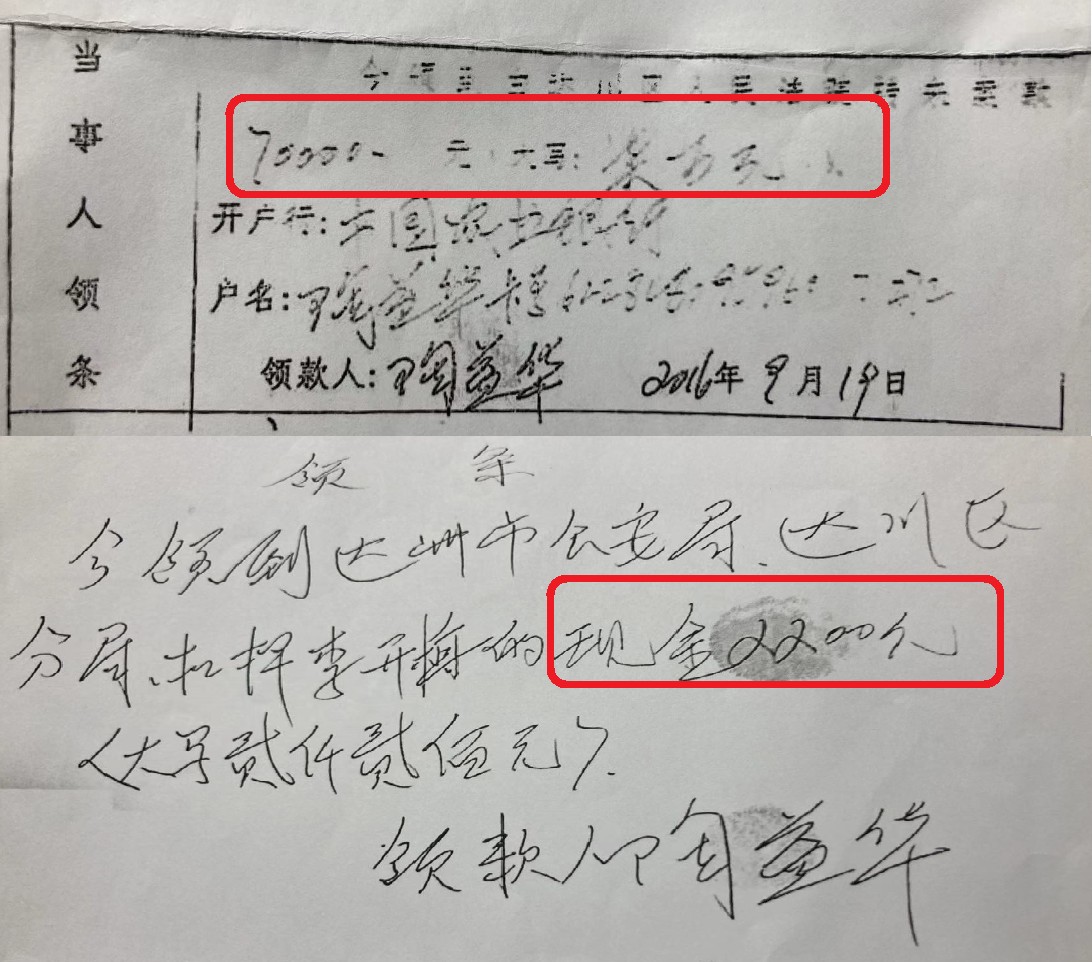 当事人领条
今领到达州市达川区人民法院转来案款
70000- 元(大写:柒万元
开户行:中国农业银行
户名:陶益华
领款人:陶益华 2016年9月19日
领 条
今领到达州市公安局、达川区
分局、扣押李开梅的现金2200元
(大写贰仟贰佰元).
领款人陶益华